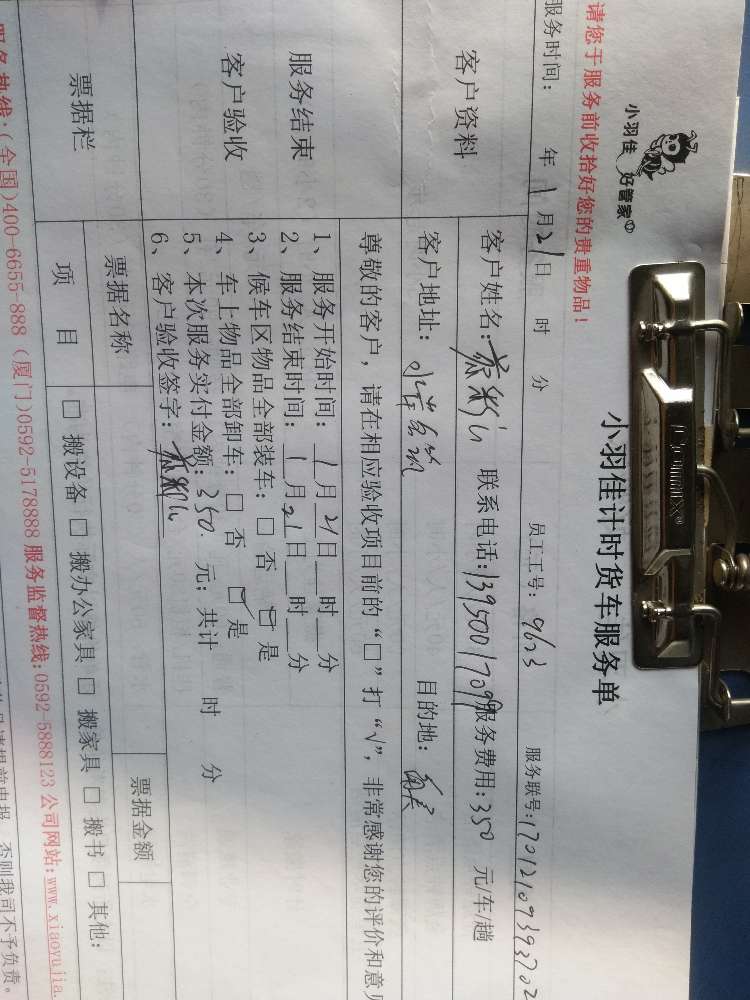 小羽佳 好管家
小羽佳计时货车服务单
请您于服务前收拾好您的贵重物品!
服务时间: 年 1 月 21 日 时 分 员工工号: 9623 服务联号: 17012109393702
客户资料
客户姓名: 联系电话: 13950017099 服务费用: 350 元/车/趟
客户地址: 目的地:
服务结束
客户验收
尊敬的客户，请在相应验收项目前的“□”打“√”，非常感谢您的评价和意见
1、服务开始时间: 1 月 21 日 时 分
2、服务结束时间: 1 月 21 日 时 分
3、候车区物品全部装车: □ 否 ☑ 是
4、车上物品全部卸车: □ 否 ☑ 是
5、本次服务实付金额: 350. 元; 共计 时 分
6、客户验收签字:
票据栏
票据名称 票据金额
项目 □ 搬设备 □ 搬办公家具 □ 搬家具 □ 搬书 □ 其他:
服务热线:(全国)400-6655-888 (厦门)0592-5178888 服务监督热线:0592-5888123 公司网站:www.xiaoyujia.
请提前申报，否则我司不予负责。